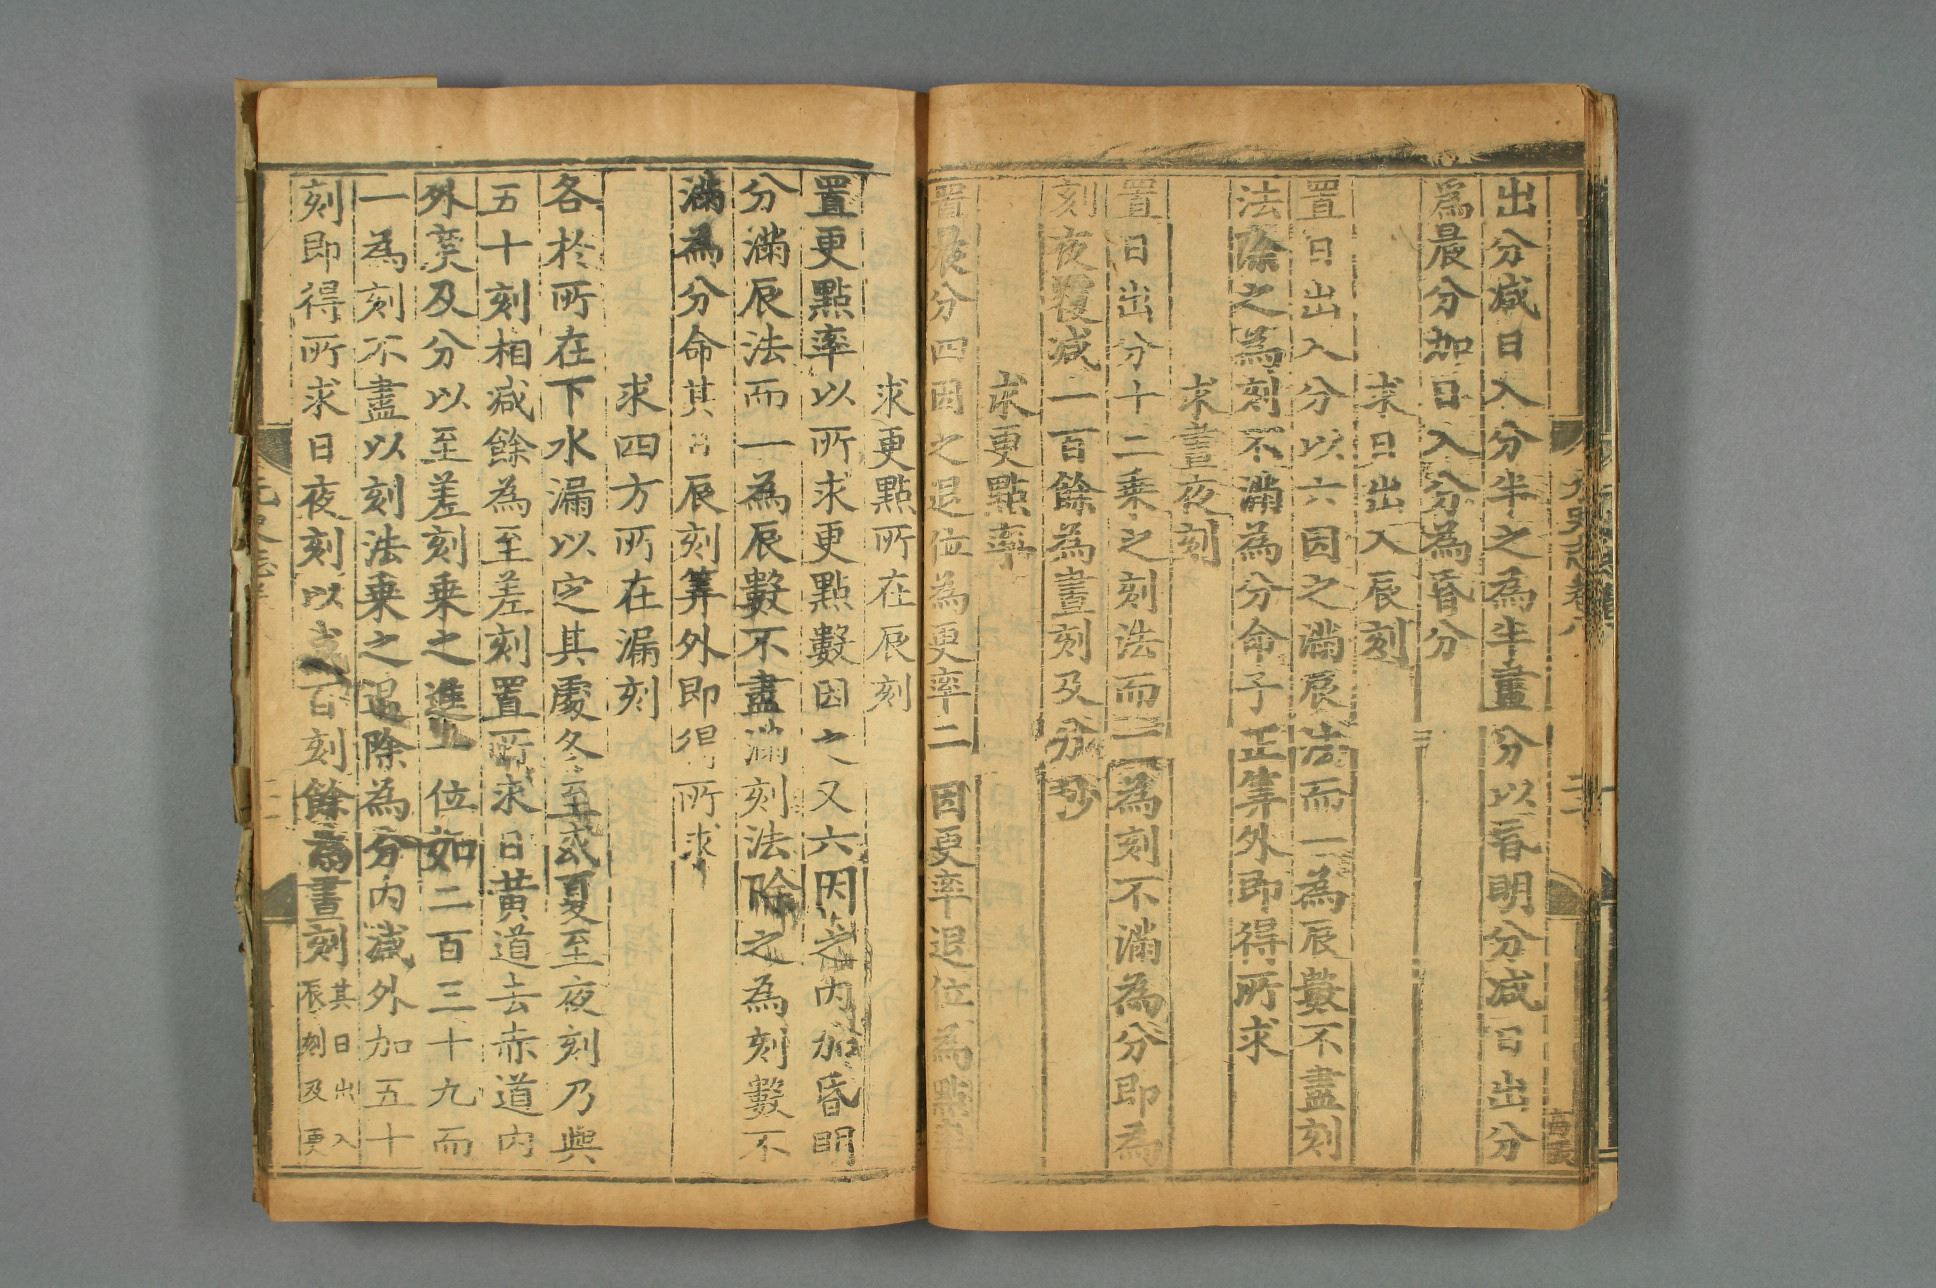 出分减日入分半之為半晝分以昏明分减日出分
為晨分加日入分為昏分
求日出入辰刻
置日出入分以六因之滿辰法而一為辰數不盡刻
法除之為刻不滿為分命子正筭外即得所求
求晝夜刻
置日出分十二乘之刻法而一為刻不滿為分即為
刻夜覆减一百餘為晝刻及分秒
求更點率
置晨分四因之退位為更率二因更率退位為點率
求更點所在辰刻
置更點率以所求更點數因之又六因之內加昏明
分滿辰法而一為辰數不盡滿刻法除之為刻數不
滿為分命其日辰刻筭外即得所求
求四方所在漏刻
各於所在下水漏以定其處冬至或夏至夜刻乃與
五十刻相减餘為至差刻置所求日黃道去赤道內
外度及分以至差刻乘之進一位如二百三十九而
一為刻不盡以刻法乘之退除為分內减外加五十
刻即得所求日夜刻以减百刻餘為晝刻其日出入辰刻及更